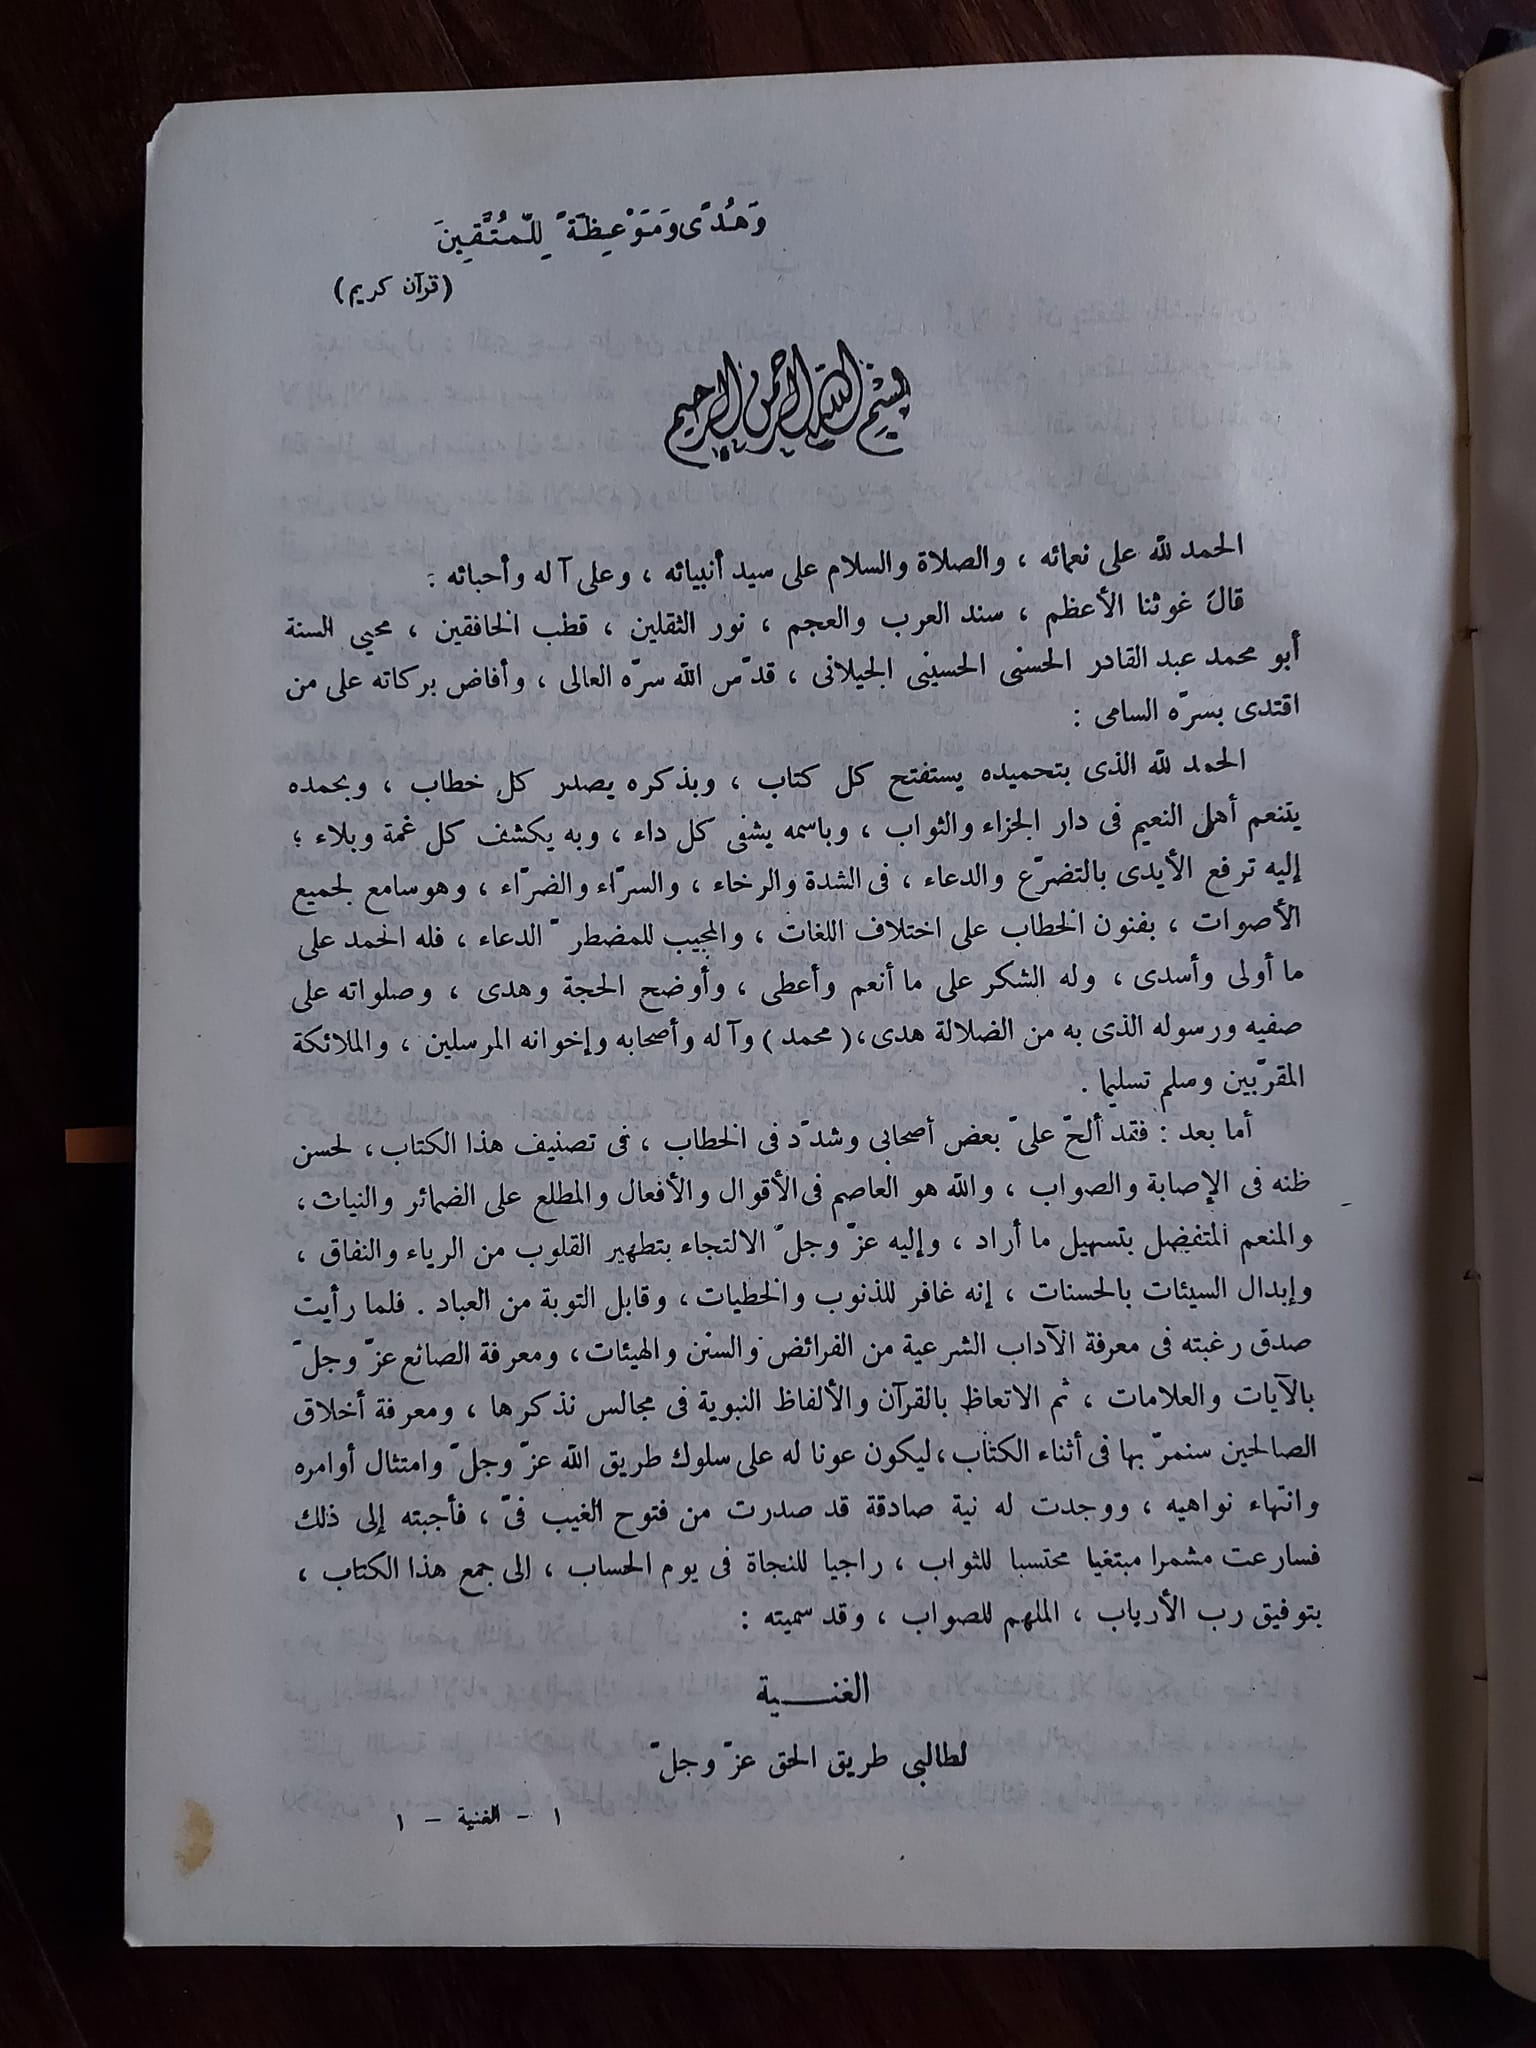 وَهُدًى وَمَوْعِظَةً لِلْمُتَّقِينَ
(قرآن كريم)
بسم الله الرحمن الرحيم
الحمد لله على نعمائه ، والصلاة والسلام على سيد أنبيائه ، وعلى آ له وأحبائه :
قال غوثنا الأعظم ، سند العرب والعجم ، نور الثقلين ، قطب الخافقين ، محيى السنة
أبو محمد عبد القادر الحسنى الحسينى الجيلانى ، قدّس الله سرّه العالى ، وأفاض بركاته على من
اقتدى بسرّه السامى :
الحمد لله الذى بتحميده يستفتح كل كتاب ، وبذكره يصدر كل خطاب ، وبحمده
يتنعم أهل النعيم فى دار الجزاء والثواب ، وباسمه يشفى كل داء ، وبه يكشف كل غمة وبلاء ؛
إليه ترفع الأيدى بالتضرّع والدعاء ، فى الشدة والرخاء ، والسرّاء والضرّاء ، وهو سامع لجميع
الأصوات ، بفنون الخطاب على اختلاف اللغات ، والمجيب للمضطرّ الدعاء ، فله الحمد على
ما أولى وأسدى ، وله الشكر على ما أنعم وأعطى ، وأوضح الحجة وهدى ، وصلواته على
صفيه ورسوله الذى به من الضلالة هدى، ( محمد ) وآ له وأصحابه وإخوانه المرسلين ، والملائكة
المقرّبين وسلم تسليما .
أما بعد : فقد ألحّ علىّ بعض أصحابى وشدّد فى الخطاب ، فى تصنيف هذا الكتاب، لحسن
ظنه فى الإصابة والصواب ، والله هو العاصم فى الأقوال والأفعال والمطلع على الضمائر والنيات،
والمنعم المتفضل بتسهيل ما أراد ، وإليه عزّ وجلّ الالتجاء بتطهير القلوب من الرياء والنفاق ،
وإبدال السيئات بالحسنات ، إنه غافر للذنوب والخطيات، وقابل التوبة من العباد . فلما رأيت
صدق رغبته فى معرفة الآداب الشرعية من الفرائض والسنن والهيئات، ومعرفة الصانع عزّ وجلّ
بالآيات والعلامات ، ثم الاتعاظ بالقرآن والألفاظ النبوية فى مجالس نذكرها ، ومعرفة أخلاق
الصالحين سنمرّ بها فى أثناء الكتاب، ليكون عونا له على سلوك طريق الله عزّ وجلّ وامتثال أوامره
وانتهاء نواهيه ، ووجدت له نية صادقة قد صدرت من فتوح الغيب فىّ ، فأجبته إلى ذلك
فسارعت مشمرا مبتغيا محتسبا للثواب ، راجيا للنجاة فى يوم الحساب ، إلى جمع هذا الكتاب ،
بتوفيق رب الأرباب ، الملهم للصواب ، وقد سميته :
الغنـــية
لطالبى طريق الحق عزّ وجلّ
١ - الغنية - ١